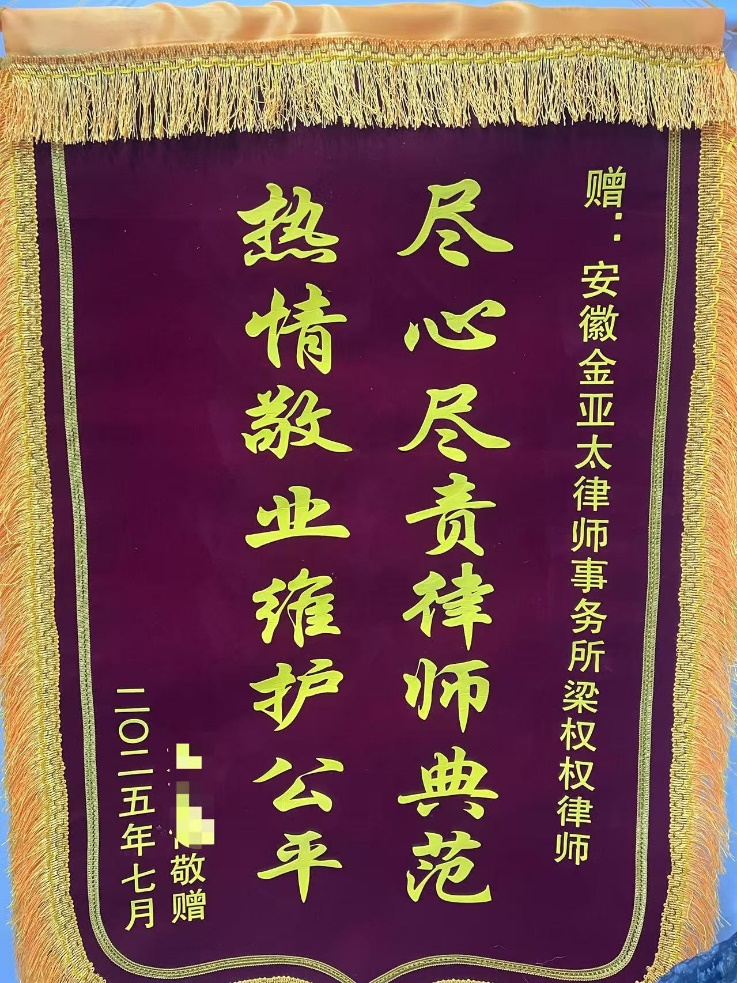 赠：安徽金亚太律师事务所梁权权律师
尽心尽责律师典范
热情敬业维护公平
敬赠
二〇二五年七月